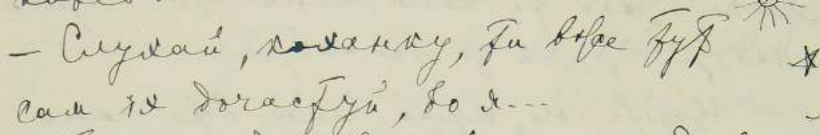 — Слухай, коханку, ти вже тут
сам їх дочастуй, бо я...